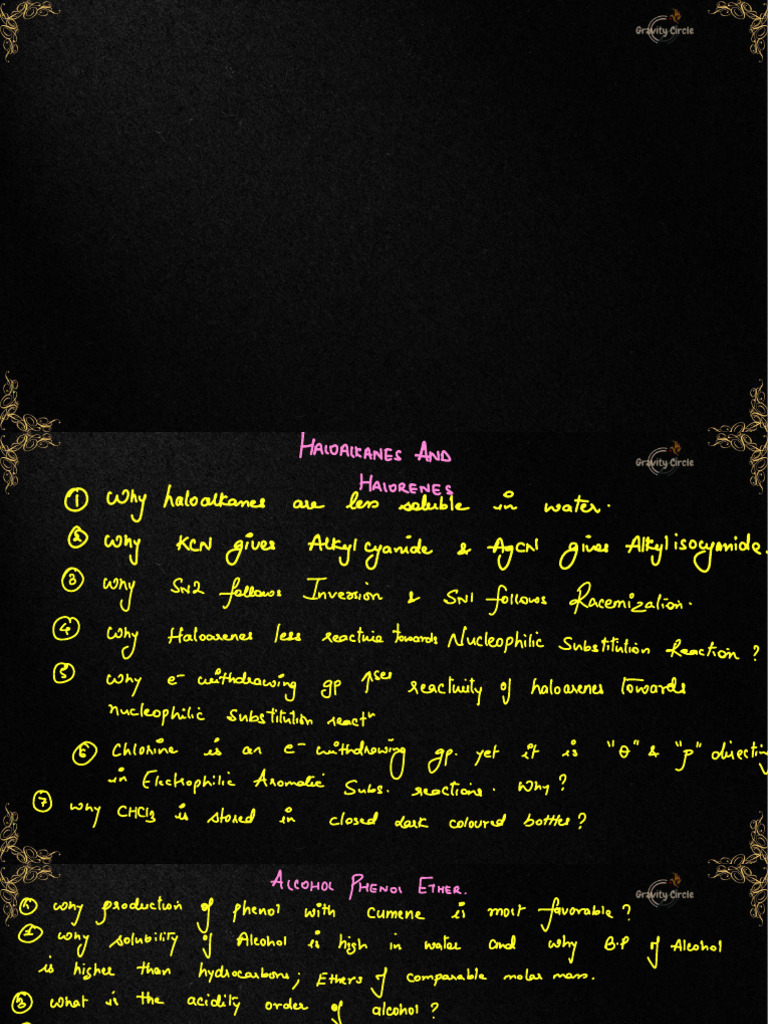 Gravity Circle
HALOALKANES AND
HALORENES
Gravity Circle
① Why haloalkanes are less soluble in water.
② Why KCN gives Alkyl cyanide & AgCN gives Alkyl isocyanide.
③ Why SN2 follows Inversion & SN1 follows Racemization.
④ Why Haloarenes less reactive towards Nucleophilic Substitution Reaction ?
⑤ Why e- withdrawing gp ↑ses reactivity of haloarenes towards
nucleophilic substitution reactn
⑥ Chlorine is an e- withdrawing gp. yet it is "O" & "p" directing
in Electrophilic Aromatic Subs. reactions. Why ?
⑦ Why CHCl3 is stored in closed dark coloured bottles ?
ALCOHOL PHENOL ETHER.
Gravity Circle
① Why production of phenol with cumene is most favorable ?
② Why solubility of Alcohol is high in water and why B.P of Alcohol
is higher than hydrocarbons; Ethers of comparable molar mass.
③ What is the acidity order of alcohol ?